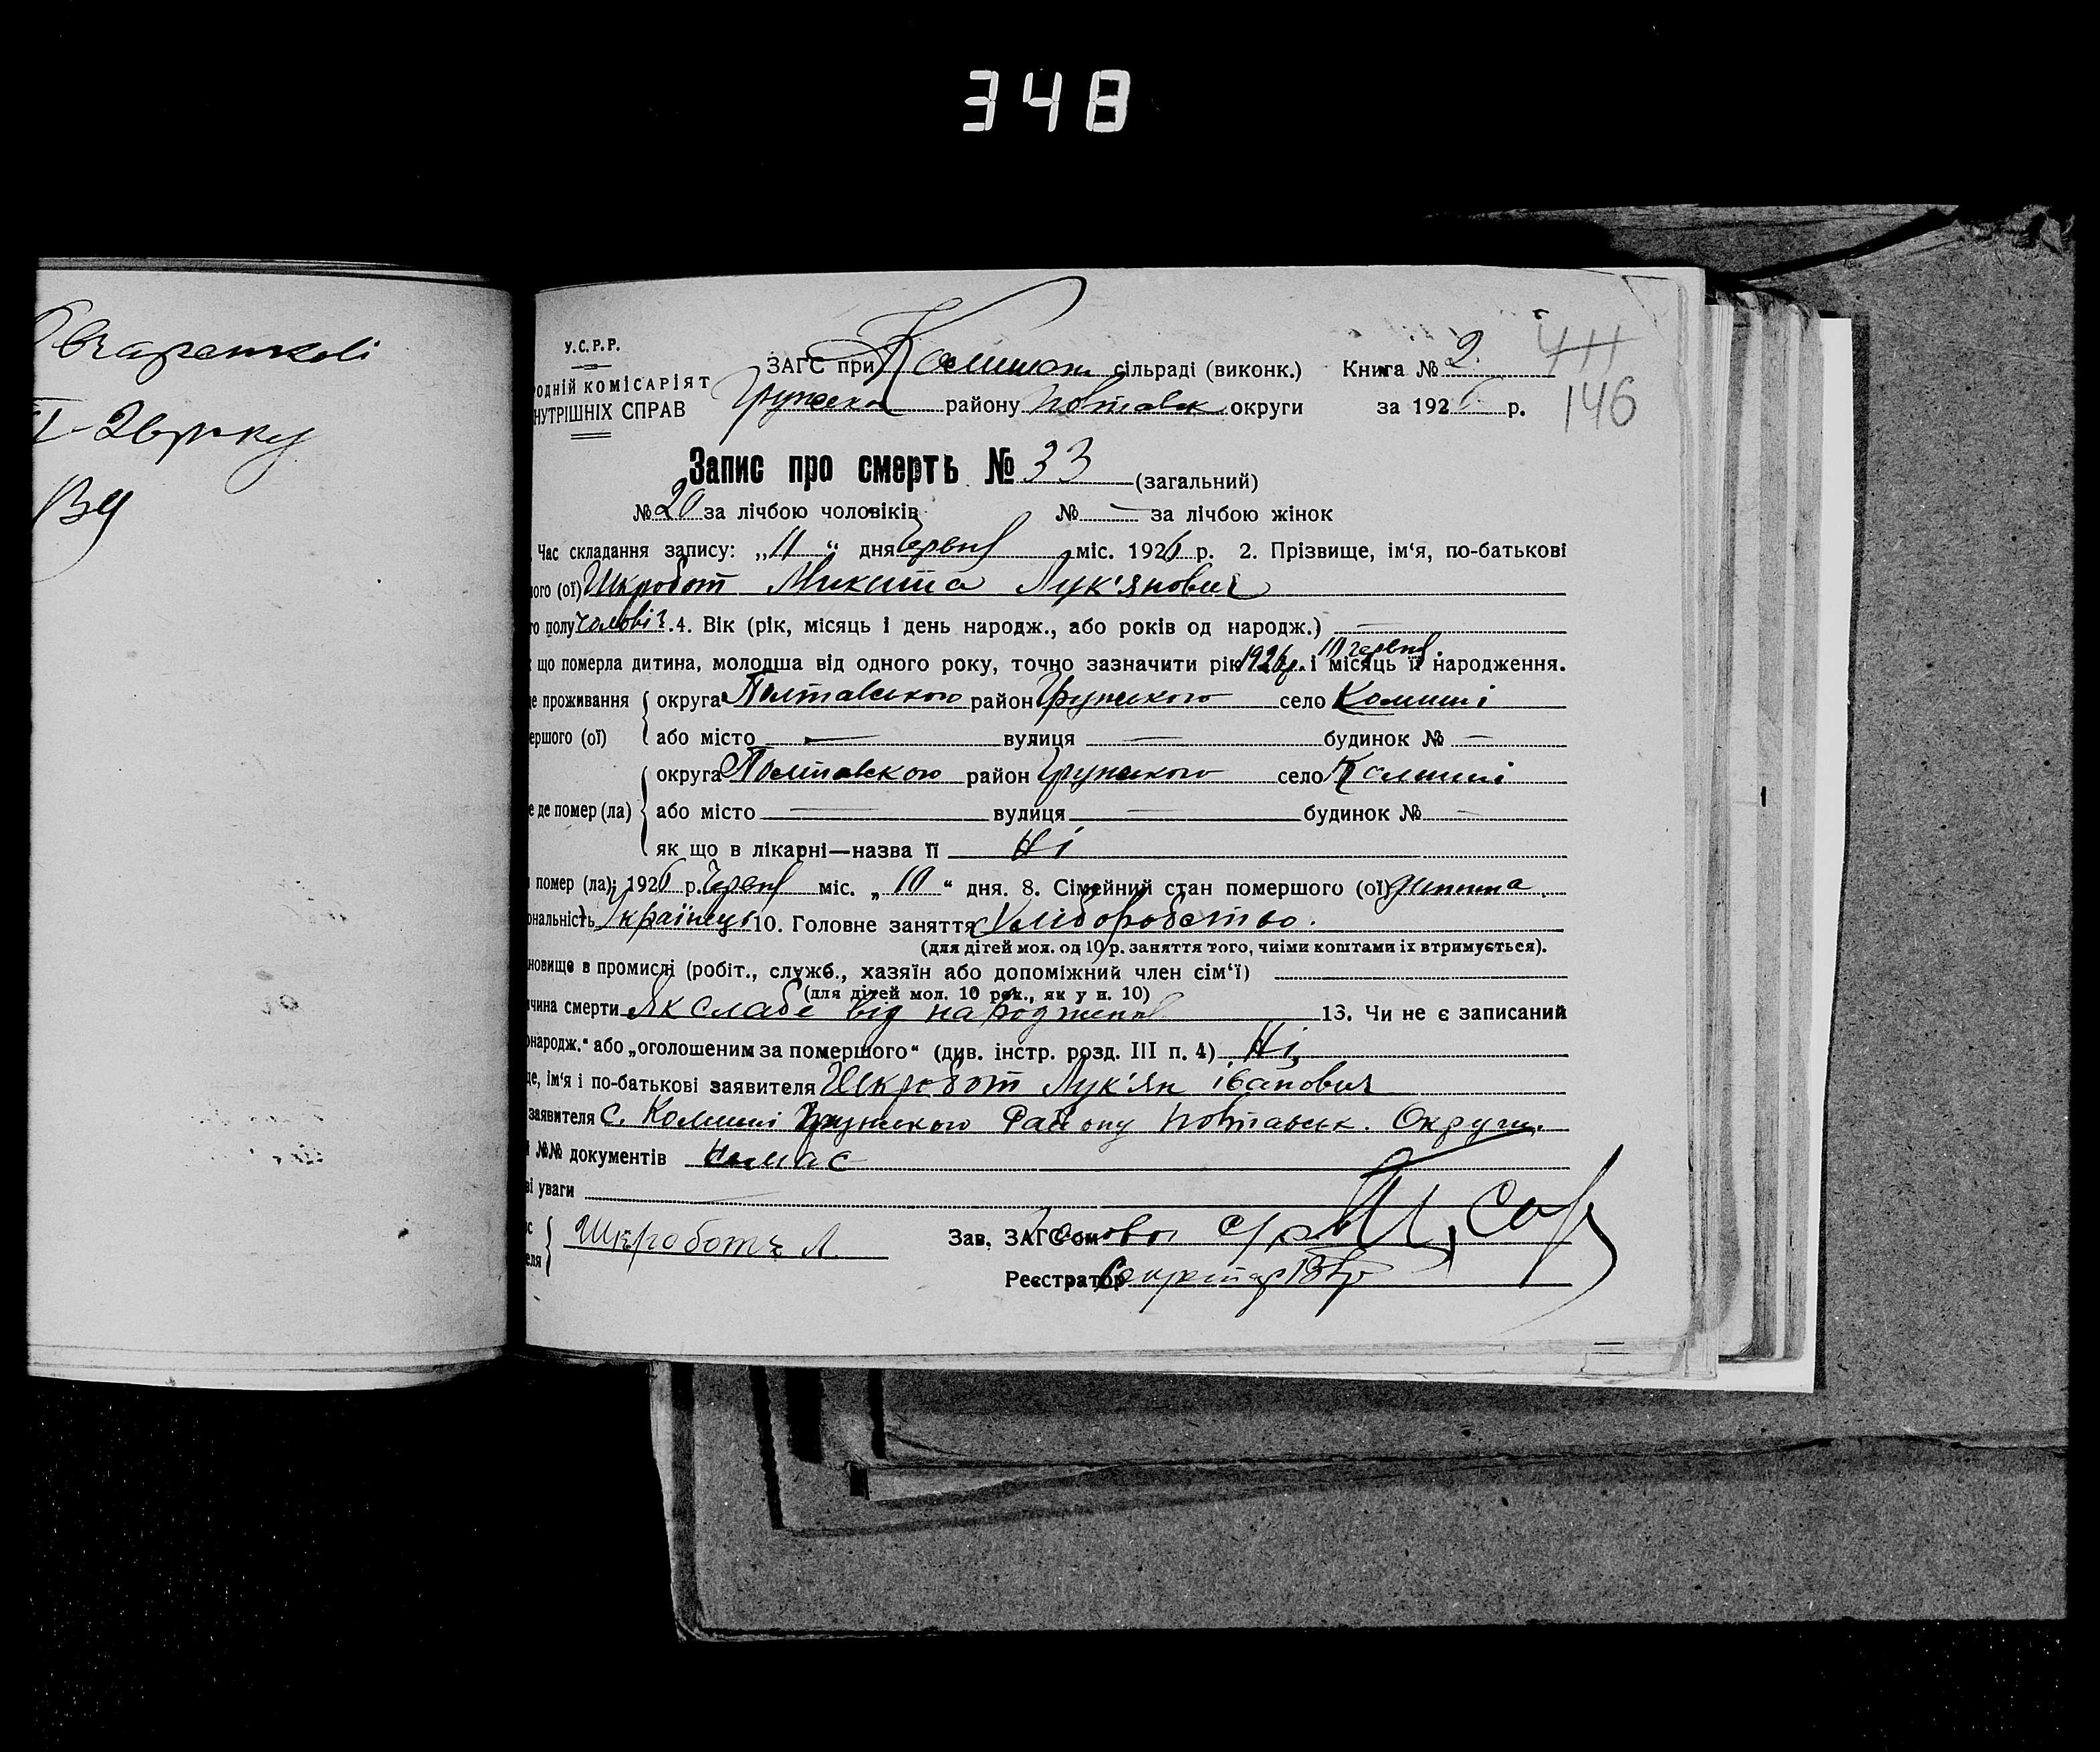 348
У.С.Р.Р.
РОДНІЙ КОМІСАРІЯТ
НУТРІШНІХ СПРАВ
ЗАГС при Комишан сільраді (виконк.) Книга № 2.
Грунського району Полтавськ округи за 1926 р.
146
Запис про смерть № 33 (загальний)
№ 20 за лічбою чоловіків № — за лічбою жінок
Час складання запису: „11“ дня Червня міс. 1926 р. 2. Прізвище, ім‘я, по-батькові
ого (ої) Шкробот Микита Лук'янович
го полу чоловіч. 4. Вік (рік, місяць і день народж., або років од народж.) —
що померла дитина, молодша від одного року, точно зазначити рік 1926 р. і 10 червня місяць її народження.
е проживання округа Полтавського район Грунського село Комиші
ершого (ої) або місто — вулиця — будинок № —
округа Полтавського район Грунського село Комиші
е де помер (ла) або місто — вулиця — будинок № —
як що в лікарні—назва її Ні
помер (ла) 1926 р. Червня міс. „10“ дня. 8. Сімейний стан помершого (ої) дитина
ональність Українець 10. Головне заняття Хліборобство.
(для дітей мол. од 10 р. заняття того, чиїми коштами їх втримується).
новище в промислі (робіт., служб., хазяїн або допоміжний член сім‘ї)
(для дітей мол. 10 рок., як у п. 10)
чина смерти Як слабе від народження 13. Чи не є записаний
народж.“ або „оголошеним за помершого“ (див. інстр. розд. III п. 4) Ні
е, ім‘я і по-батькові заявителя Шкробот Лук'ян іванович
заявителя С. Комиші Грунського Району Полтавськ. Округи.
№№ документів немає
ві уваги
Шкроботь Л. Зав. ЗАГС‘ом Голова с/р
еля Реєстратор Секретар